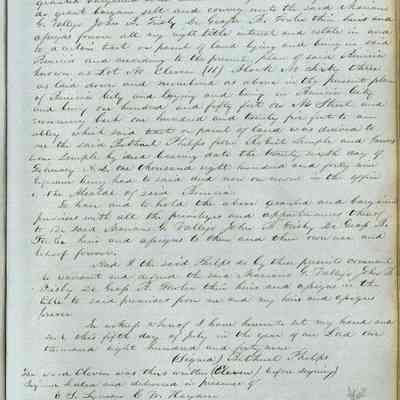 do grant bargain sell and convey unto the said Mariano
G. Vallejo John B. Frisby De Grasse B. Fowler their heirs and
assigns forever all my right title interest and estate in and
to a certain tract or parcel of land lying and being in said
Benicia and according to the present plan of said Benicia
known as Lot No Eleven (11) Block No Sixty three
as laid down and numbered as above in the present plan
of Benicia City and laying and being in Benicia City
and being one hundred and fifty feet on No Street and
running back one hundred and twenty five feet to an
alley which said tract or parcel of land was deeded to
me the said Bethuel Phelps from Robert Semple and Frances
Ann Semple by deed bearing date the twenty sixth day of
February A.D. one thousand eight hundred and forty nine
reference being had to said deed now on record in the office
of the Alcalde of said Benicia
To have and to hold the above granted and bargained
premises with all the privileges and appurtenances thereof
to the said Mariano G. Vallejo John B. Frisby De Grasse B.
Fowler heirs and assigns to them and their own use and
behoof forever.
And I the said Phelps do by these presents covenant
to warrant and defend the said Mariano G. Vallejo John B.
Frisby De Grasse B. Fowler their heirs and assigns in the
title to said premises from me and my heirs and assigns
forever
In witness whereof I have hereunto set my hand and
seal this fifth day of July in the year of our Lord one
thousand eight hundred and forty nine
(Signed) Bethuel Phelps
The word Eleven was then written (Eleven) before signing
Signed sealed and delivered in presence of